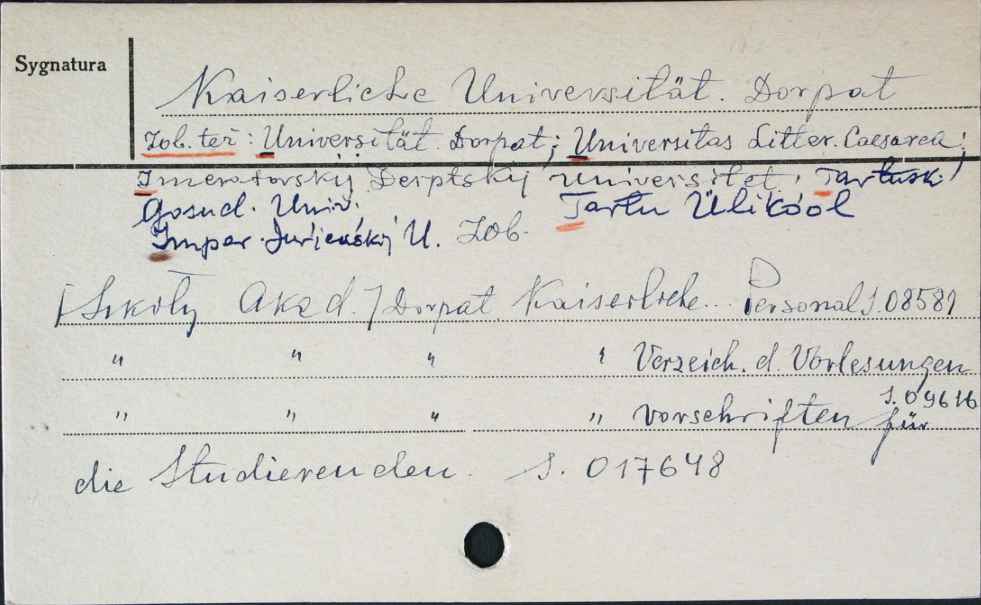 Sygnatura
Kaiserliche Universität. Dorpat
Zob. też: Universität Dorpat; Universitas Litter. Caesarea;
Imeratorskij Derptskij Universitet, Tartusk.
Gosud. Univ. Tartu Ülikool
Imper. Jurjevskij U. Zob.
[Szkoły Akad.] Dorpat Kaiserliche... Personal S.08581
" " " " Verzeich. d. Vorlesungen
S.09616
" " " " Vorschriften für
die Studierenden. S. 017648